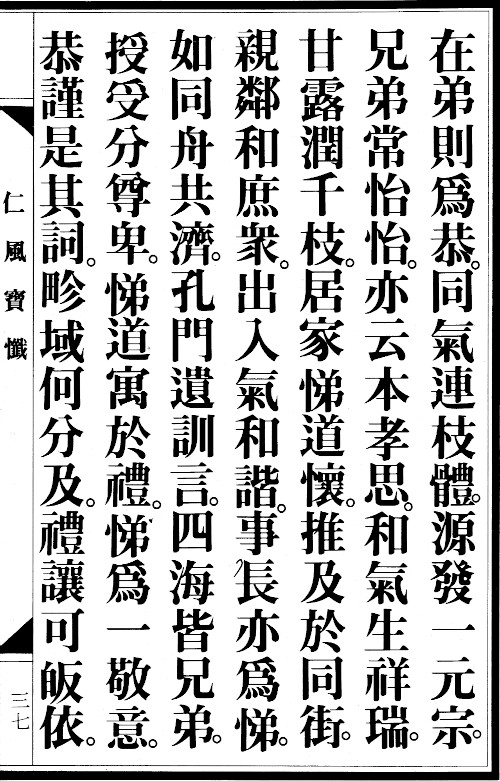 在弟則爲恭。同氣連枝體。源發一元宗。
兄弟常怡怡。亦云本孝思。和氣生祥瑞。
甘露潤千枝。居家悌道懷。推及於同街。
親鄰和庶衆。出入氣和諧。事長亦爲悌。
如同舟共濟。孔門遺訓言。四海皆兄弟。
授受分尊卑。悌道寓於禮。悌爲一敬意。
恭謹是其詞。畛域何分及。禮讓可皈依。
仁風寶懺
三七